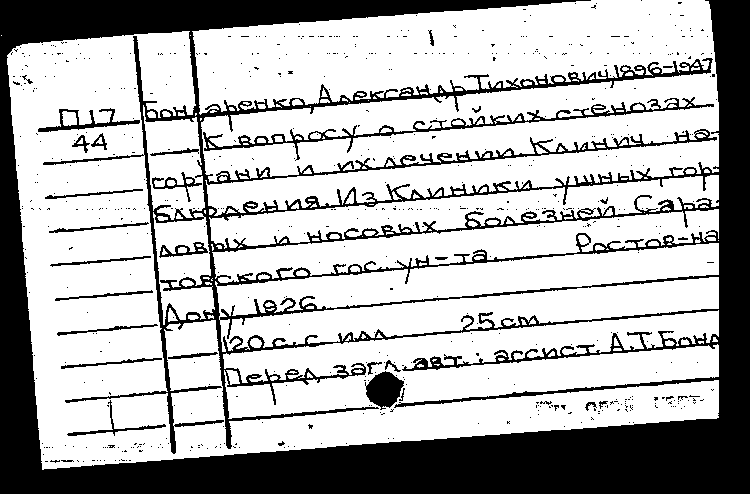 П17 Бондаренко, Александр Тихонович, 1896-1947
44 К вопросу о стойких стенозах
гортани и их лечении. Клинич. на-
блюдения. Из Клиники ушных, гор-
ловых и носовых болезней Сара-
товского гос. ун-та. Ростов-на
Дону, 1926.
120 с. с илл. 25 cm
Перед загл. авт.: ассист. А.Т. Бонд